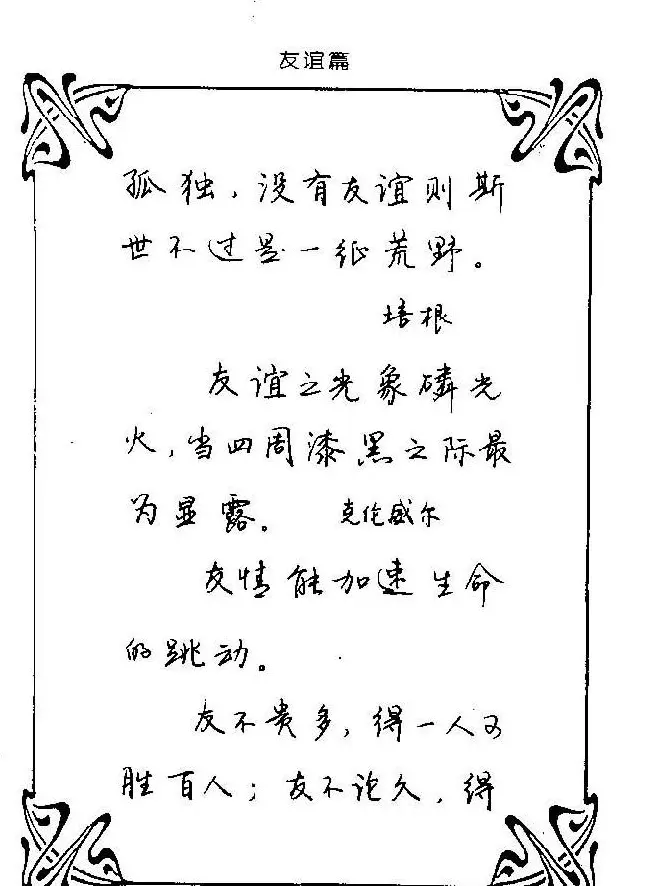 友谊篇
孤独，没有友谊则斯
世不过是一纸荒野。
培根
友谊之光象磷光
火，当四周漆黑之际最
为显露。 克伦威尔
友情能加速生命
的跳动。
友不贵多，得一人可
胜百人；友不论久，得